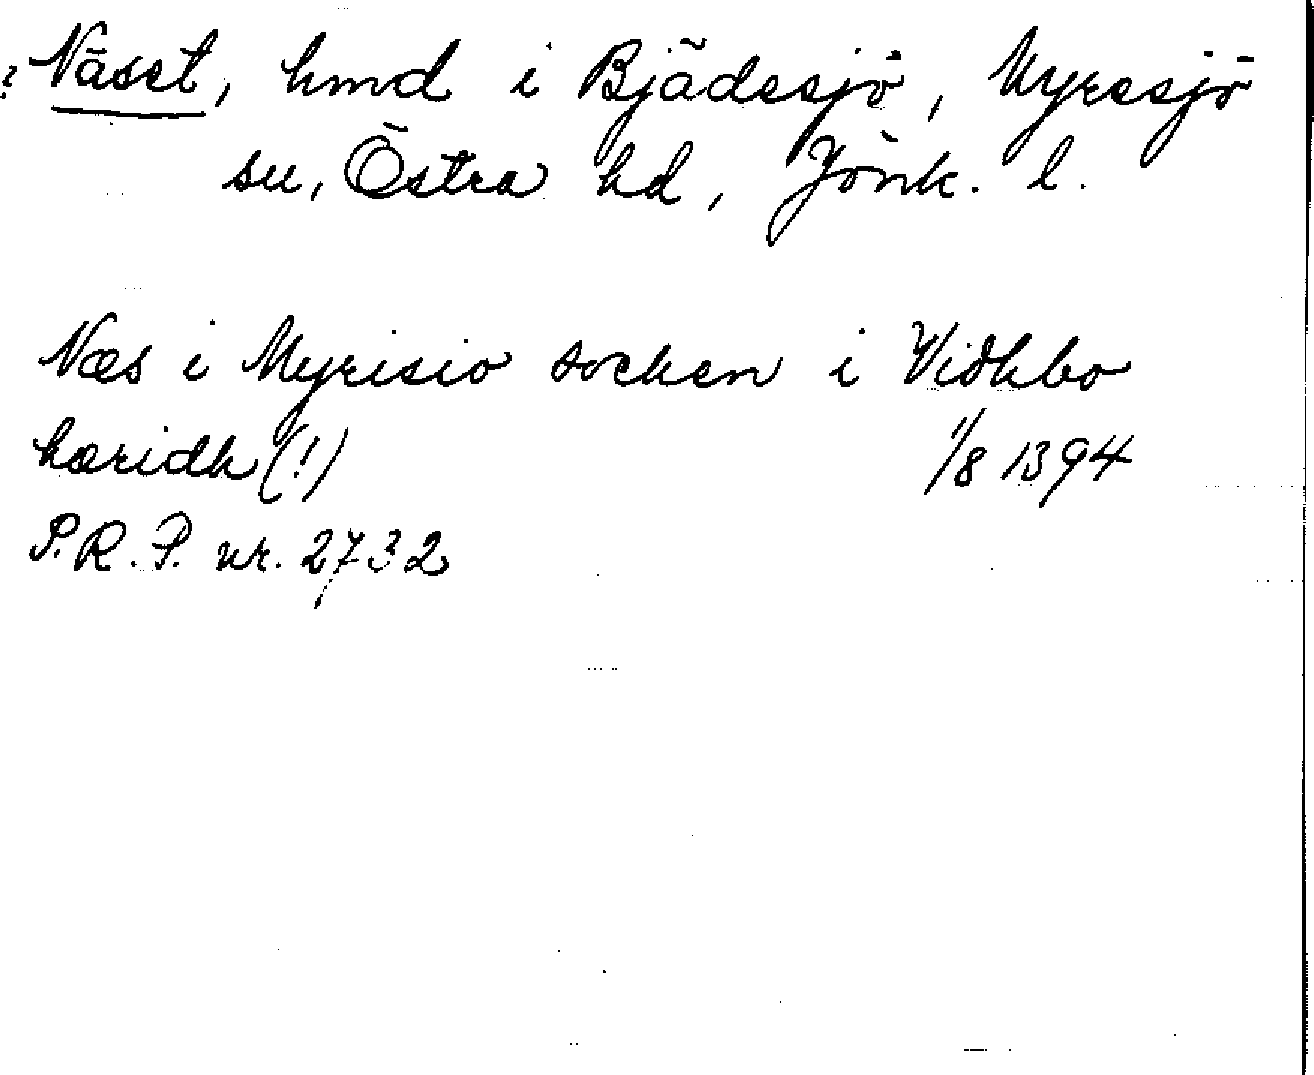 ? Näset, hmd i Bjädesjö, Myresjö
sn, Östra hd, Jönk. l.
Næs i Myrisio socken i Vidhbo
hæridh (!) 1/8 1394
P.R.P. nr. 2732